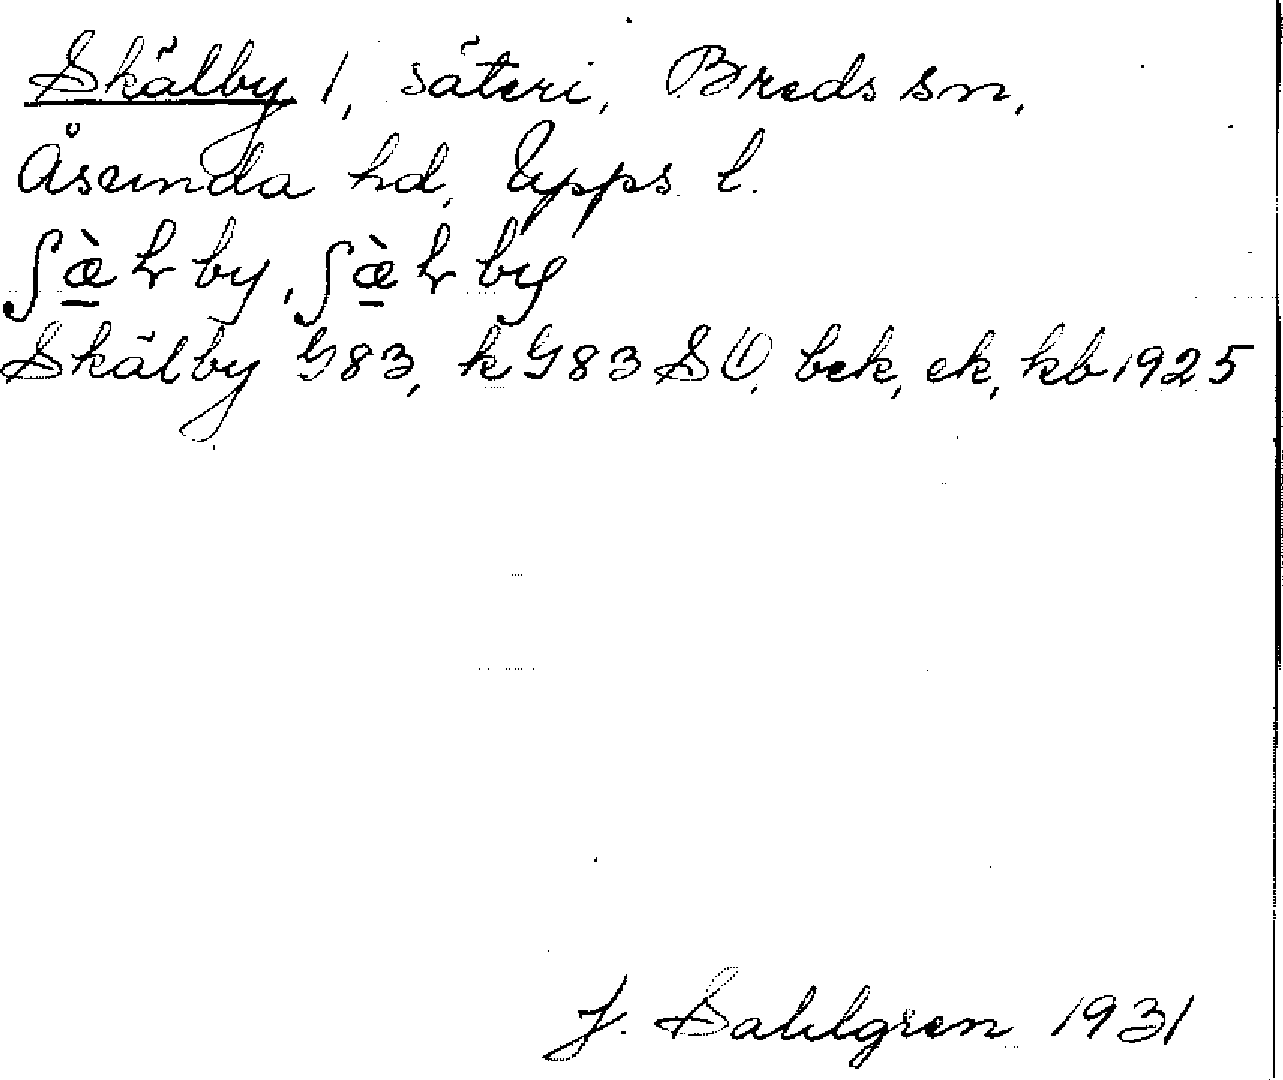 Skälby 1, säteri, Breds sn,
Åsunda hd, Upps. l.
ʃæ̀ɫby, ʃæ̀ɫby
Skälby G83, kG83 SO, bek, ek, kb 1925
J. Sahlgren 1931